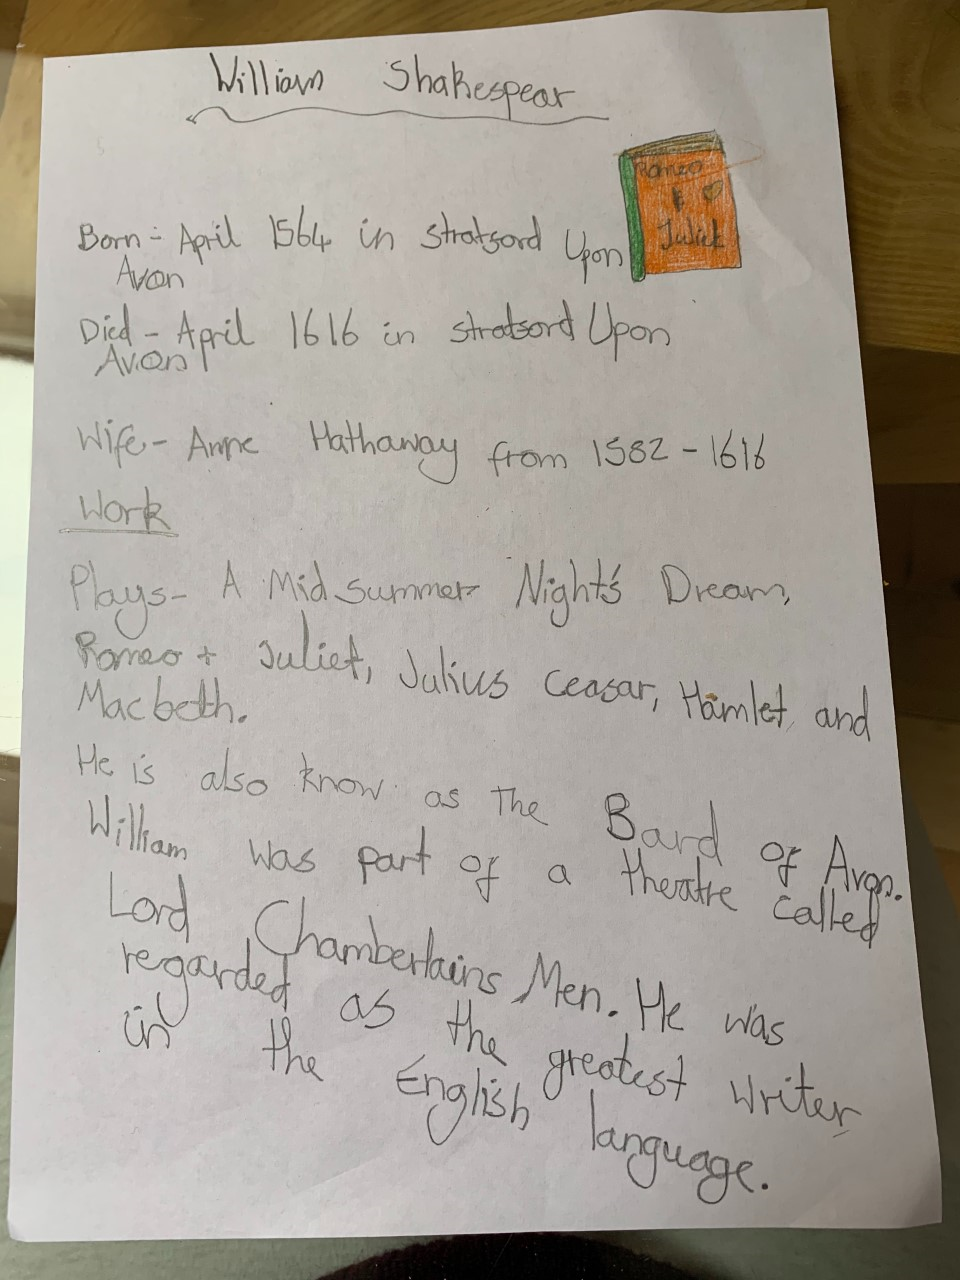 William Shakespear
Romeo
&
Juliet
Born - April 1564 in stratsord Upon
Avon
Died - April 1616 in stratsord Upon
Avon
Wife - Anne Hathaway from 1582 - 1616
Work
Plays - A Mid summer Night's Dream,
Romeo + Juliet, Julius ceasar, Hamlet, and
Macbeth.
He is also know as The Bard of Avon.
William was part of a theatre called
Lord Chamberlains Men. He was
regarded as the greatest writer
in the English language.